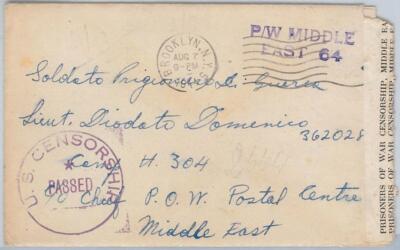 BROOKLYN, N.Y.
AUG 7
9-PM
P/W MIDDLE
EAST 64
Soldato Prigioniero di Guerra
Lieut. Diodato Domenico
362028
Camp H. 304
% Chief P.O.W. Postal Centre
Middle East
U.S. CENSORSHIP
PASSED
PRISONERS OF WAR CENSORSHIP, MIDDLE EA
PRISONERS OF WAR CENSORSHIP, MIDDLE E